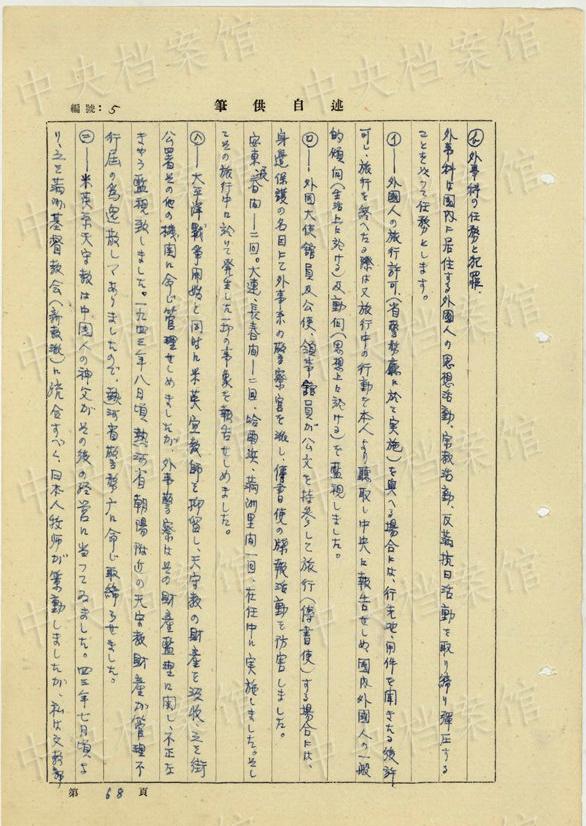 述自供筆
編號：5
㈥外事科の任務と犯罪.
外事科は国内に居住する外國人の思想活動、宗教活動、反滿抗日活動を取り締り彈圧する
ことを以つて任務とします。
㋑——外國人の旅行許可（省警務廳に於て実施）を與へる場合には、行先地、用件を聞きたる後許
可し、旅行を終へたる際は又旅行中の行動を本人より聽取し中央に報告せしめ、國内外國人の一般
的傾向（生活上に於ける）及動向（思想上に於ける）を監視しました。
㋺——外國大使館員及公使、領事館員が公文を持参して旅行（傳書使）する場合には、
身邊保護の名目にて外事系の警察官を派し、傳書使の諜報活動を防害しました。
安東、長春间—二回。大連、長春间—二回、哈爾浜、満洲里间一回、在任中に実施しました。そし
てその旅行中に於て発生した一切の事象を報告せしめました。
㋩——大平洋戰爭開始と同時に米英宣教師を抑留し、天守教の財產を沒收、之を街
公署その他の機関に命じ管理せしめましたが、外事警察はその財產監理に関し、不正な
きやう監視致しました。一九四三年八月頃、熱河省朝陽附近の天守教財產が管理不
行届の為逸散してありましたので、熱河省警務廳に命じ取締らせました。
㊁——米英系天守教は中國人の神父がその後の経営に当つてゐました。四三年七月頃よ
り、之を満洲基督教会（新教派）に統合すべく、日本人牧師が策動しましたが、私は文教部
第68頁
中央档案馆